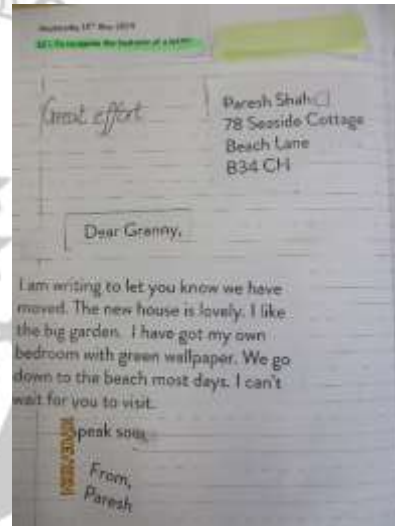 Great effort
Paresh Shah
78 Seaside Cottage
Beach Lane
B34 CH
Dear Granny,
I am writing to let you know we have
moved. The new house is lovely. I like
the big garden. I have got my own
bedroom with green wallpaper. We go
down to the beach most days. I can't
wait for you to visit.
Speak soon,
From,
Paresh